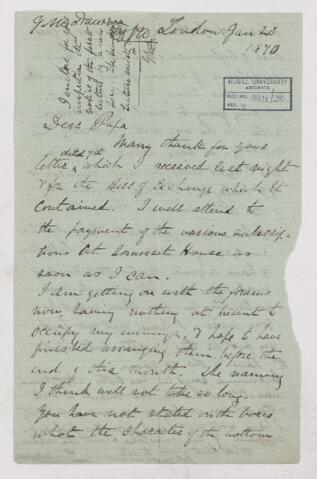 London Jan 2d
1870
McGILL UNIVERSITY
ARCHIVES
ACC. NO.
REF.
I enclose for your
inspection the
notice of the first
lecture of a new
Dear Papa
Many thanks for your
dated 7th
letter which I received last night
& for the Bill of Exchange which it
contained. I will attend to
the payment of the various subscrip-
tions at Somerset House as
soon as I can.
I am getting on with the
now, having nothing at present to
occupy my evenings, & hope to have
finished arranging them before the
end of this month. The naming
I think will not take so long.
You have not stated on the boxes
what the character of the bottom